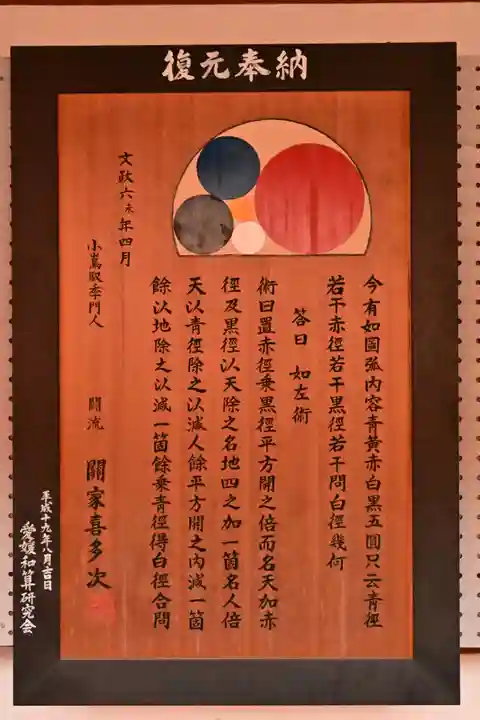 復元奉納
今有如圖弧内容青黃赤白黒五圓只云青徑
若干赤徑若干黒徑若干問白徑幾何
答曰 如左術
術曰置赤徑乗黒徑平方開之倍而名天加赤
徑及黒徑以天除之名地四之加一箇名人倍
天以青徑除之以減人餘平方開之内減一箇
餘以地除之以減一箇餘乗青徑得白徑合問
文政六未年四月
小嶌馭季門人
關流 關家喜多次
平成十九年八月吉日
愛媛和算研究会